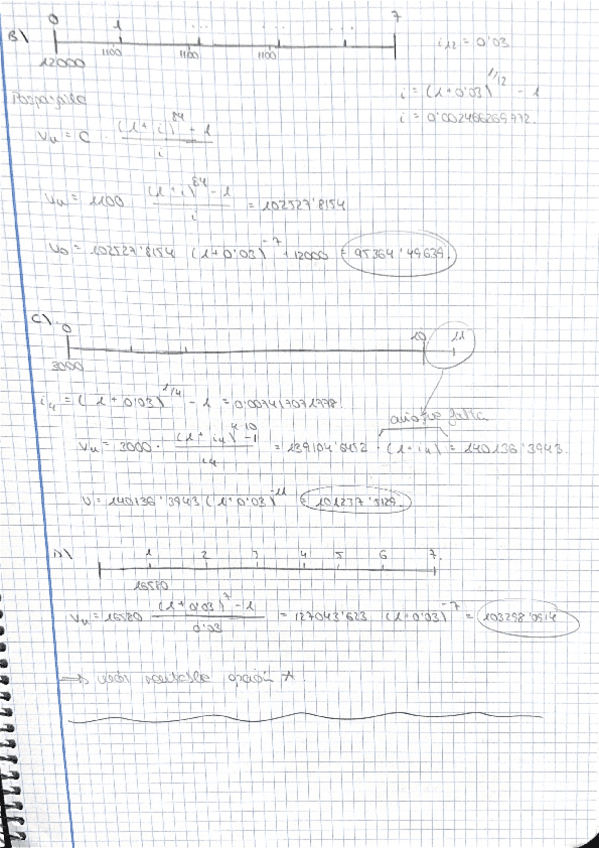 B) 0 1 ... ... 7
12000 1100 1100 1100
i12 = 0'03
i = (1+0'03)^1/12 - 1
i = 0'002466269772.
Pospagable
Vn = C · (1+i)^84 - 1 / i
Vn = 1100 (1+i)^84 - 1 / i = 102527'8154
V0 = 102527'8154 (1+0'03)^-7 + 12000 = 95364'49639.
C) 0 10 11
3000
i4 = (1+0'03)^1/4 - 1 = 0'007417071778.
año q falta
Vn = 3000 · (1+i4)^4·10 - 1 / i4 = 139104'6452 · (1+i4) = 140136'3943.
V = 140136'3943 (1+0'03)^-11 = 101237'5129.
D) 1 2 3 4 5 6 7.
16580
Vn = 16580 (1+0'03)^7 - 1 / 0'03 = 127043'623 (1+0'03)^-7 = 103298'0514
⇒ opción A